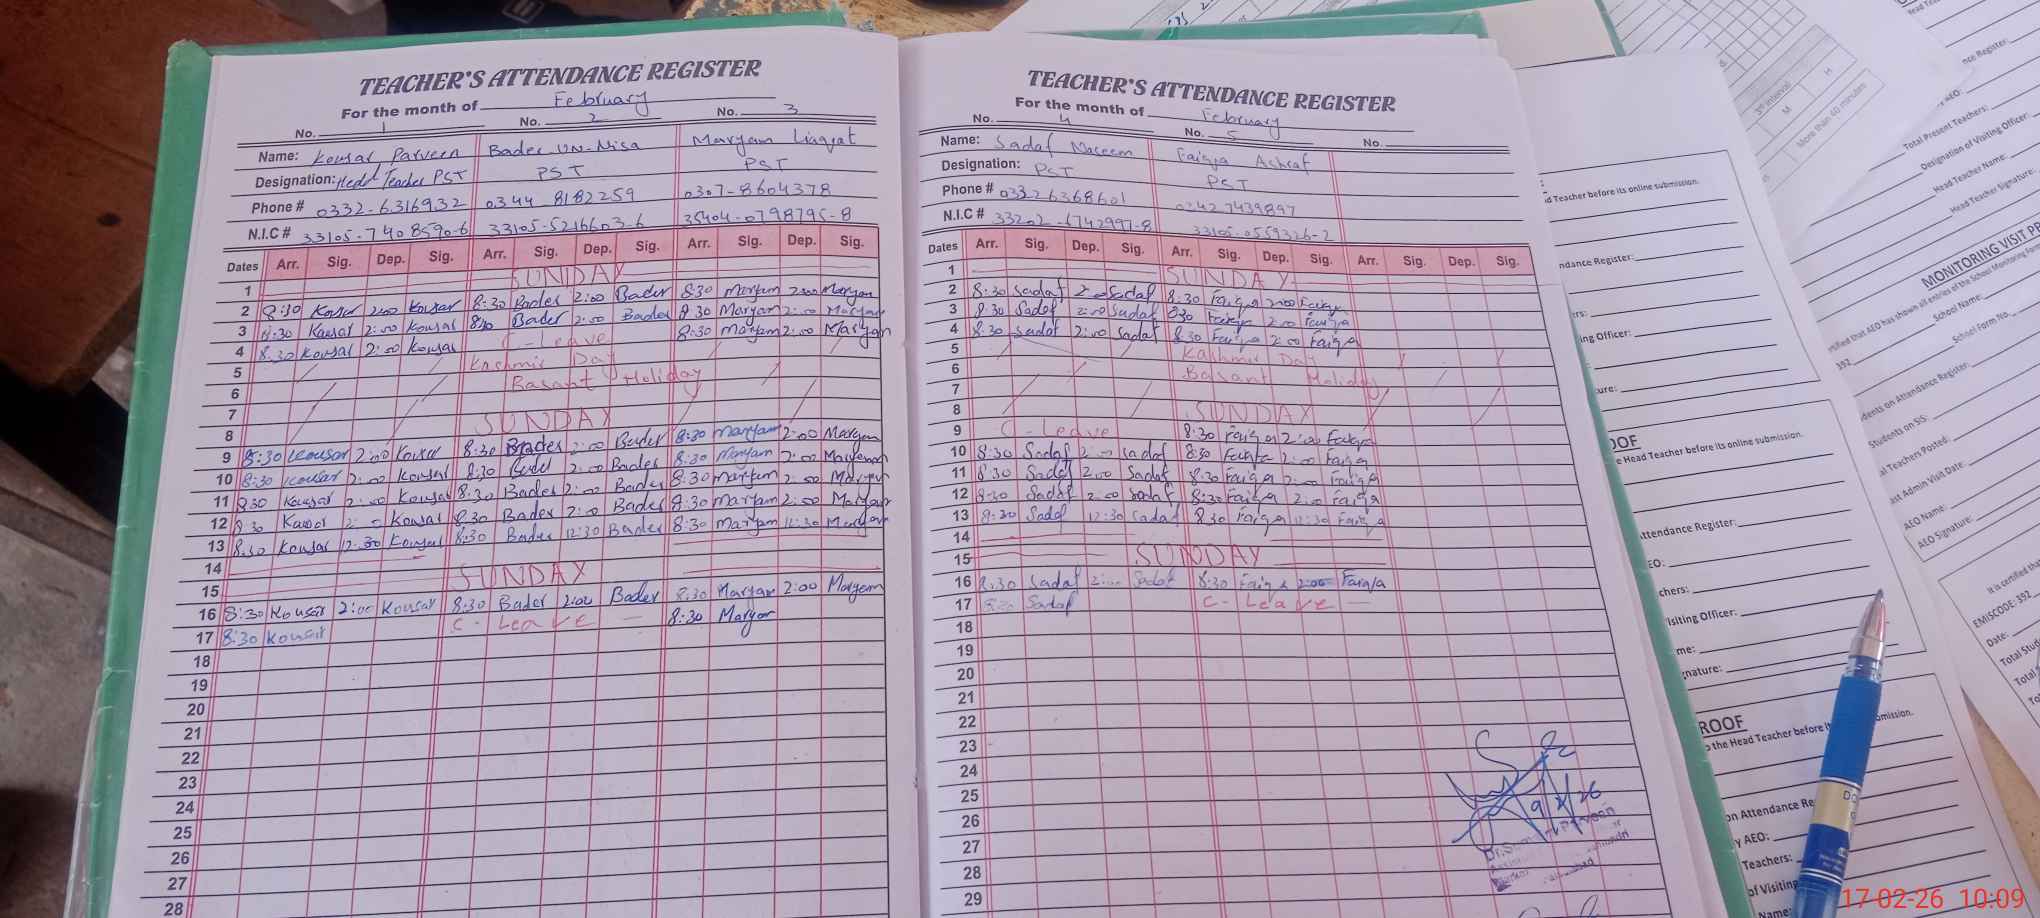 TEACHER'S ATTENDANCE REGISTER
For the month of February
No. 1 No. 2 No. 3
Name: Kousar Parveen Bader UN-Nisa Maryam Liaqat
Designation: Head Teacher PST PST PST
Phone # 0332-6316932 0344-8182259 0307-8604378
N.I.C # 33105-7408590-6 33105-5216603-6 35404-0798795-8
Dates Arr. Sig. Dep. Sig. Arr. Sig. Dep. Sig. Arr. Sig. Dep. Sig.
1 SUNDAY
2 8:30 Kousar 2:00 Kousar 8:30 Bader 2:00 Bader 8:30 Maryam 2:00 Maryam
3 8:30 Kousar 2:00 Kousar 8:30 Bader 2:00 Bader 8:30 Maryam 2:00 Maryam
4 8:30 Kousar 2:00 Kousar C-Leave 8:30 Maryam 2:00 Maryam
5 Kashmir Day
6 Basant Holiday
7
8 SUNDAY
9 8:30 Kousar 2:00 Kousar 8:30 Bader 2:00 Bader 8:30 Maryam 2:00 Maryam
10 8:30 Kousar 2:00 Kousar 8:30 Bader 2:00 Bader 8:30 Maryam 2:00 Maryam
11 8:30 Kousar 2:00 Kousar 8:30 Bader 2:00 Bader 8:30 Maryam 2:00 Maryam
12 8:30 Kousar 2:00 Kousar 8:30 Bader 2:00 Bader 8:30 Maryam 2:00 Maryam
13 8:30 Kousar 12:30 Kousar 8:30 Bader 12:30 Bader 8:30 Maryam 12:30 Maryam
14
15 SUNDAY
16 8:30 Kousar 2:00 Kousar 8:30 Bader 2:00 Bader 8:30 Maryam 2:00 Maryam
17 8:30 Kousar C-Leave 8:30 Maryam
18
19
20
21
22
23
24
25
26
27
28
TEACHER'S ATTENDANCE REGISTER
For the month of February
No. 4 No. 5 No.
Name: Sadaf Naseem Faiqa Ashraf
Designation: PST PST
Phone # 03326368601 03427439897
N.I.C # 33202-6742997-8 33105-0559326-2
Dates Arr. Sig. Dep. Sig. Arr. Sig. Dep. Sig. Arr. Sig. Dep. Sig.
1 SUNDAY
2 8:30 Sadaf 2:00 Sadaf 8:30 Faiqa 2:00 Faiqa
3 8:30 Sadaf 2:00 Sadaf 8:30 Faiqa 2:00 Faiqa
4 8:30 Sadaf 2:00 Sadaf 8:30 Faiqa 2:00 Faiqa
5 Kashmir Day
6 Basant Holiday
7
8 SUNDAY
9 C-Leave 8:30 Faiqa 2:00 Faiqa
10 8:30 Sadaf 2:00 Sadaf 8:30 Faiqa 2:00 Faiqa
11 8:30 Sadaf 2:00 Sadaf 8:30 Faiqa 2:00 Faiqa
12 8:30 Sadaf 2:00 Sadaf 8:30 Faiqa 2:00 Faiqa
13 8:30 Sadaf 12:30 Sadaf 8:30 Faiqa 12:30 Faiqa
14
15 SUNDAY
16 8:30 Sadaf 2:00 Sadaf 8:30 Faiqa 2:00 Faiqa
17 8:30 Sadaf C-Leave
18
19
20
21
22
23
24
25
26
27
28
29
Parveen
Teacher before its online submission.
ndance Register:
ing Officer:
ure:
OOF
e Head Teacher before its online submission.
Attendance Register:
EO:
chers:
isiting Officer:
me:
gnature:
ROOF
the Head Teacher before
mission.
on Attendance Re
y AEO:
Teachers:
of Visiting
Name:
3rd Interval
M H
More than 40 minutes
Total Present Teachers:
Designation of Visiting Officer:
Head Teacher Name:
Head Teacher Signature:
MONITORING VISIT PR
School Name:
School Form No.
dents on Attendance Register:
Students on SIS:
al Teachers Posted:
ast Admin Visit Date:
AEO Name:
AEO Signature:
It is certified that
EMISCODE: 392
Date:
Total Stud
17-02-26 10:09